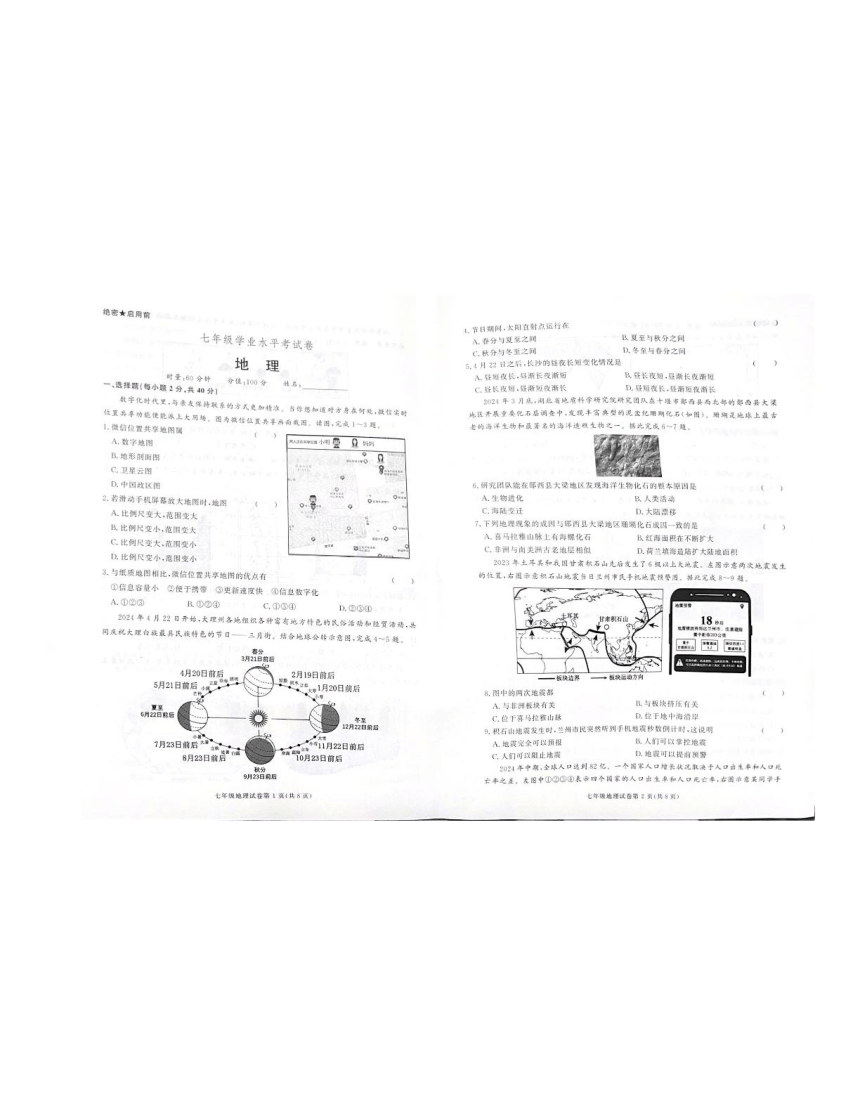 绝密★启用前
七年级学业水平考试卷
地 理
时量:60分钟 分值:100分 姓名:
一、选择题(每小题2分,共40分)
数字化时代里,与亲友保持联系的方式更加精准。当你想知道对方身在何处,微信实时
位置共享功能便能派上大用场。图为微信位置共享画面截图。读图,完成1~3题。
1.微信位置共享地图属 ( )
A.数字地图
B.地形剖面图
C.卫星云图
D.中国政区图
2.若滑动手机屏幕放大地图时,地图 ( )
A.比例尺变大,范围变大
B.比例尺变小,范围变大
C.比例尺变大,范围变小
D.比例尺变小,范围变小
小明 妈妈
3.与纸质地图相比,微信位置共享地图的优点有 ( )
①信息容量小 ②便于携带 ③更新速度快 ④信息数字化
A.①②③ B.①②④ C.①③④ D.②③④
2024年4月22日开始,大理州各地组织各种富有地方特色的民俗活动和经贸活动,共
同庆祝大理白族最具民族特色的节日——三月街。结合地球公转示意图,完成4~5题。
春分
3月21日前后
4月20日前后 2月19日前后
5月21日前后 1月20日前后
夏至
6月22日前后
冬至
12月22日前后
7月23日前后 11月22日前后
8月23日前后 10月23日前后
秋分
9月23日前后
七年级地理试卷第1页(共6页)
4.节日期间,太阳直射点运行在 ( )
A.春分与夏至之间 B.夏至与秋分之间
C.秋分与冬至之间 D.冬至与春分之间
5.4月22日之后,长沙的昼夜长短变化情况是 ( )
A.昼短夜长,昼渐长夜渐短 B.昼长夜短,昼渐长夜渐短
C.昼长夜短,昼渐短夜渐长 D.昼短夜长,昼渐短夜渐长
2024年3月底,湖北省地质科学研究院研究团队在十堰市郧西县西北部的郧西县大梁
地区开展古委化石层调查中,发现丰富典型的泥盆纪珊瑚化石(如图)。珊瑚是地球上最古
老的海洋生物和最著名的海洋造礁生物之一。据此完成6~7题。
6.研究团队能在郧西县大梁地区发现海洋生物化石的根本原因是 ( )
A.生物进化 B.人类活动
C.海陆变迁 D.大陆漂移
7.下列地理现象的成因与郧西县大梁地区珊瑚化石成因一致的是 ( )
A.喜马拉雅山脉上有海螺化石 B.红海面积在不断扩大
C.非洲与南美洲古老地层相似 D.荷兰填海造陆扩大陆地面积
2023年土耳其和我国甘肃积石山先后发生了6级以上大地震。左图示意两次地震发生
的位置,右图示意积石山地震当日兰州市民手机地震预警图。据此完成8~9题。
土耳其 甘肃积石山
板块边界 板块运动方向
地震预警
18秒后
8.图中的两次地震都 ( )
A.与非洲板块有关 B.与板块挤压有关
C.位于喜马拉雅山脉 D.位于地中海沿岸
9.积石山地震发生时,兰州市民突然听到手机地震秒数倒计时,这说明 ( )
A.地震完全可以预报 B.人们可以掌控地震
C.人们可以阻止地震 D.地震可以提前预警
2024年中期,全球人口达到82亿。一个国家人口增长状况取决于人口出生率和人口死
亡率之差。左图中①②③④表示四个国家的人口出生率和人口死亡率,右图示意某同学手
七年级地理试卷第2页(共6页)